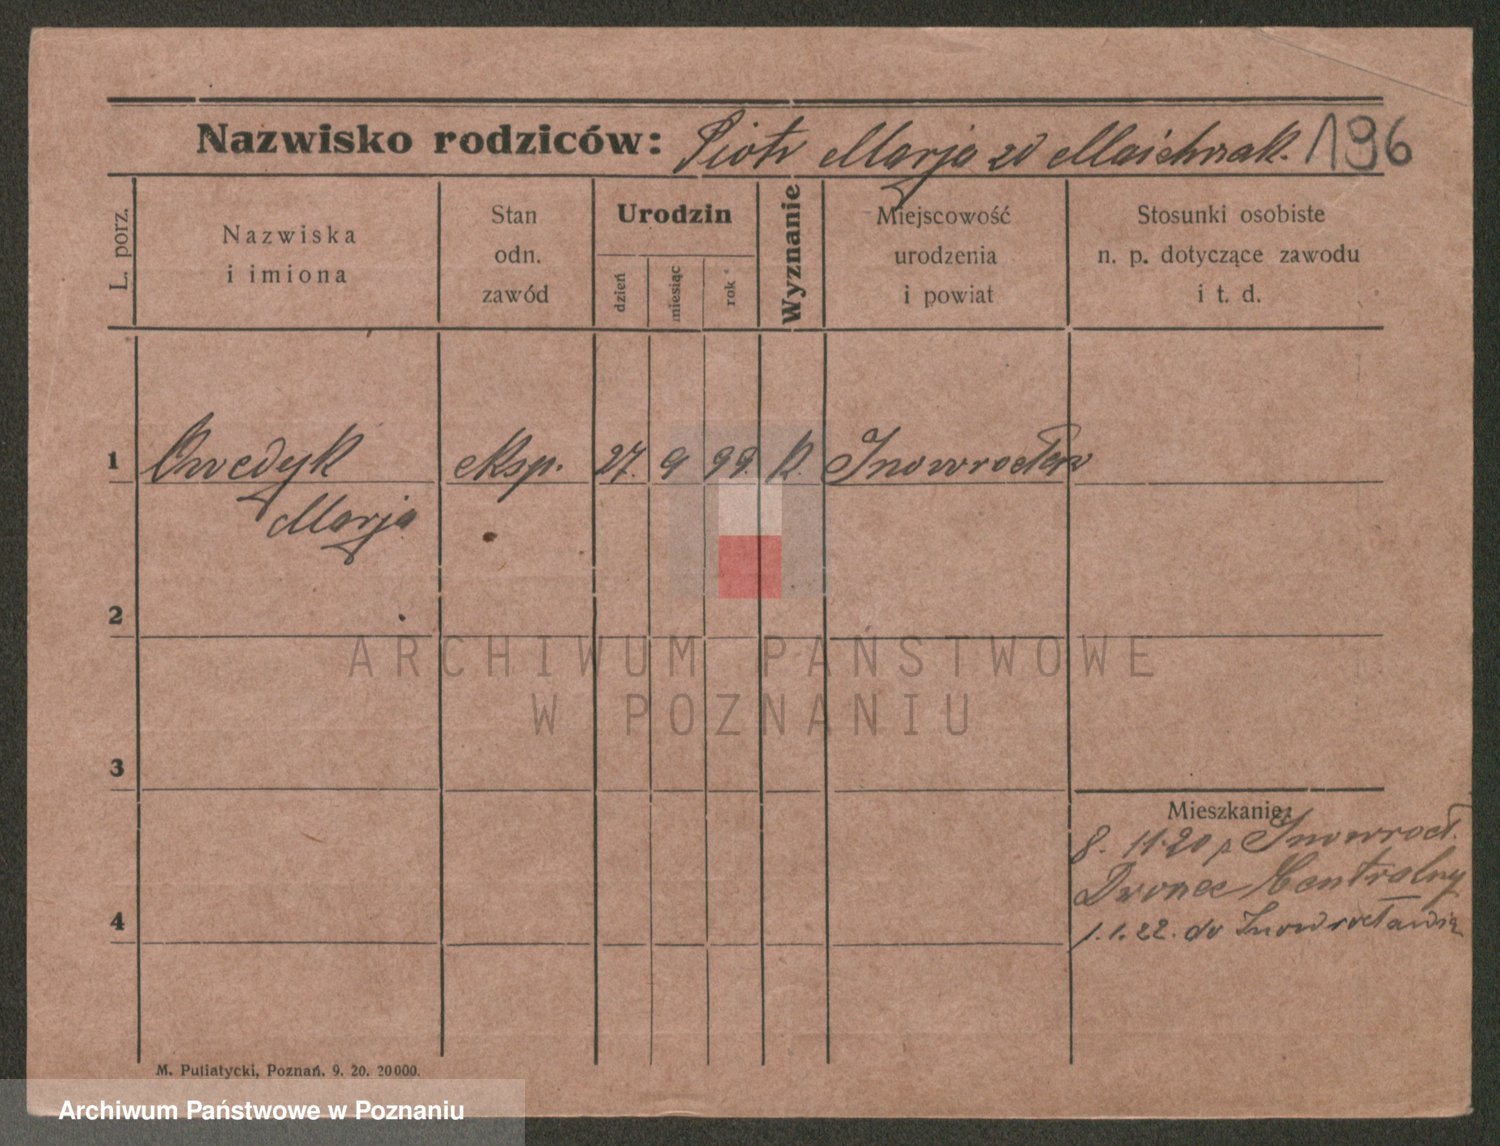 Nazwisko rodziców: Piotr Marja zd Maichrzak. 196
L. porz.
Nazwiska
i imiona
Stan
odn.
zawód
Urodzin
dzień
miesiąc
rok
Wyznanie
Miejscowość
urodzenia
i powiat
Stosunki osobiste
n. p. dotyczące zawodu
i t. d.
1 Owedyk eksp. 27. 9 99. k. Inowrocław
Marja
2
3
4
Mieszkanie:
8. 11.20 z Inowrocł.
Dworzec Centralny
1.1.22. do Inowrocławia
M. Putiatycki, Poznań. 9. 20. 20000.
ARCHIWUM PAŃSTWOWE
W POZNANIU
Archiwum Państwowe w Poznaniu